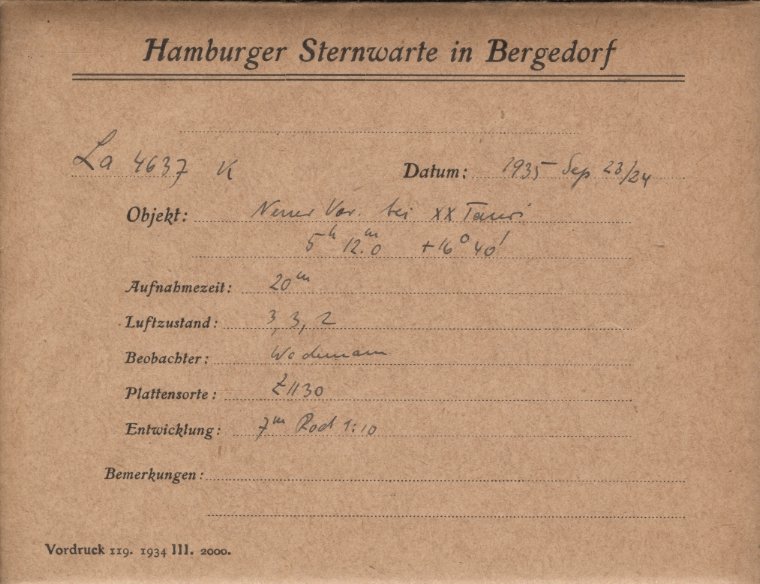 Hamburger Sternwarte in Bergedorf
La 4637 K Datum: 1935 Sep 23/24
Objekt: Neuer Var. bei XX Tauri
5h 12.m0 +16° 40'
Aufnahmezeit: 20m
Luftzustand: 3, 3, 2
Beobachter: Wachmann
Plattensorte: Z1130
Entwicklung: 7m Rod 1:10
Bemerkungen:
Vordruck 119. 1934 III. 2000.